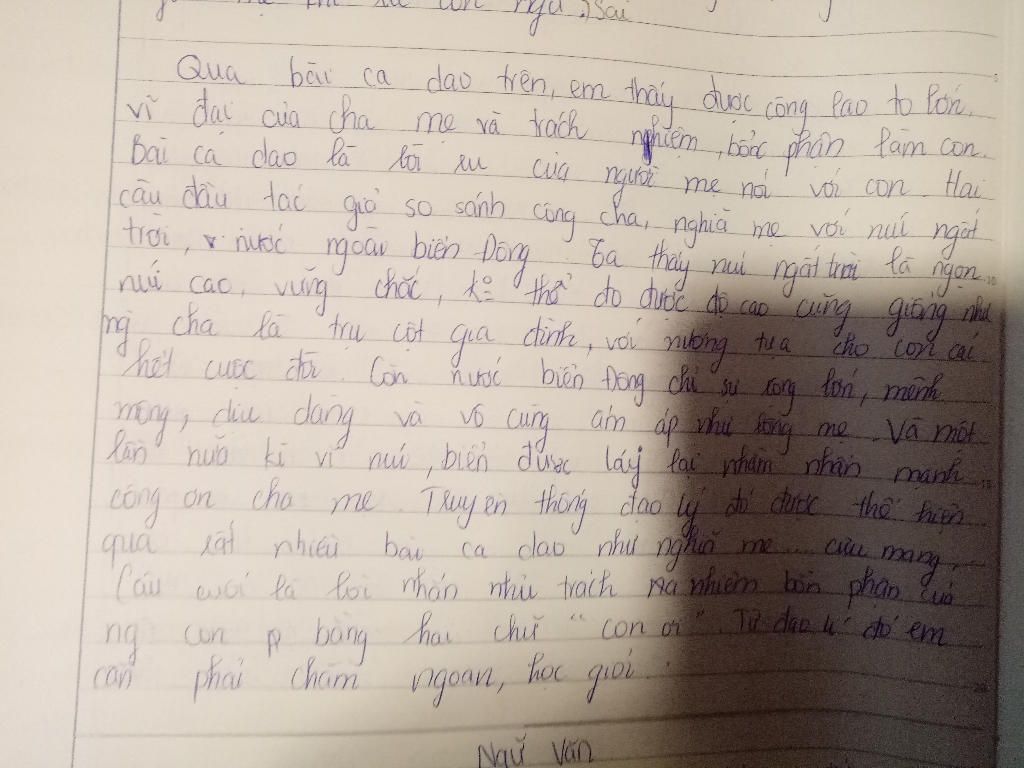 mẹ ru con ngủ, sai
Qua bài ca dao trên, em thấy được công lao to lớn,
vĩ đại của cha mẹ và trách nghiệm, bổn phận làm con.
Bài ca dao là lời ru của người mẹ nói với con. Hai
câu đầu tác giả so sánh công cha, nghĩa mẹ với núi ngất
trời, nước ngoài biển Đông. Ta thấy núi ngất trời là ngọn
núi cao, vững chắc, ko thể đo được độ cao cũng giống như
ng cha là trụ cột gia đình, với nương tựa cho con cái
hết cuộc đời. Còn nước biển Đông chỉ sự rộng lớn, mênh
mông, dịu dàng và vô cùng ấm áp như lòng mẹ. Và một
lần nữa kì vĩ núi, biển được láy lại nhằm nhấn mạnh
công ơn cha mẹ. Truyền thống đạo lý đó được thể hiện
qua rất nhiều bài ca dao như nghĩa mẹ ... cưu mang,
Câu cuối là lời nhắn nhủ trách nhiệm bổn phận của
ng con bằng hai chữ "con ơi". Từ đạo lí đó em
cần phải chăm ngoan, học giỏi.
Ngữ Văn